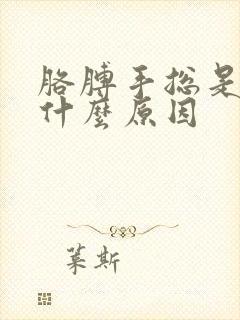 胳膊手总是
什麼原因
葉斯